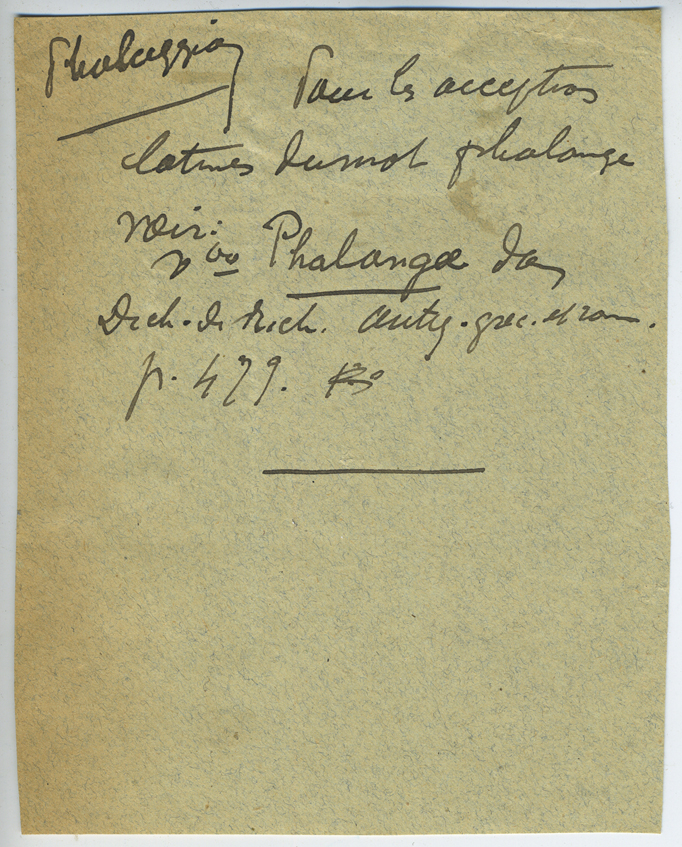 Pour les acceptions
latines du mot phalange
voir:
vᵒ Phalangæ dans
Dict. de Rich. antiq. grec. et rom.
p. 479.